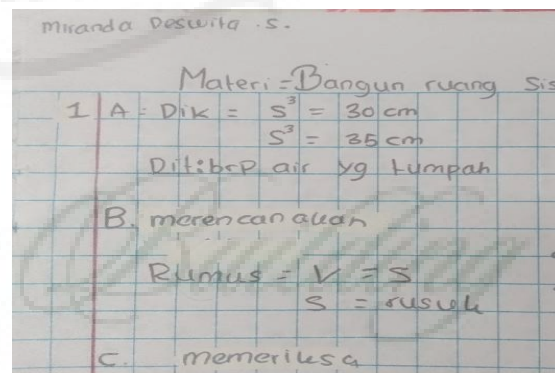 Miranda Deswita .S.
Materi = Bangun ruang Sis
1 A = Dik = S³ = 30 cm
S³ = 35 cm
Dit:brp air yg tumpah
B. merencanakan
Rumus = V = S
S = rusuk
C. memeriksa